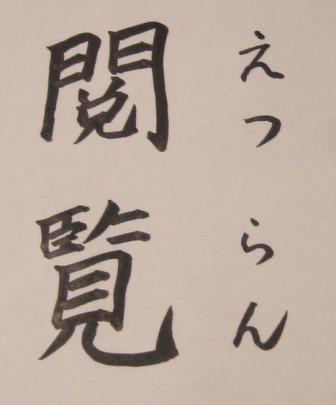 閲覧
えつらん